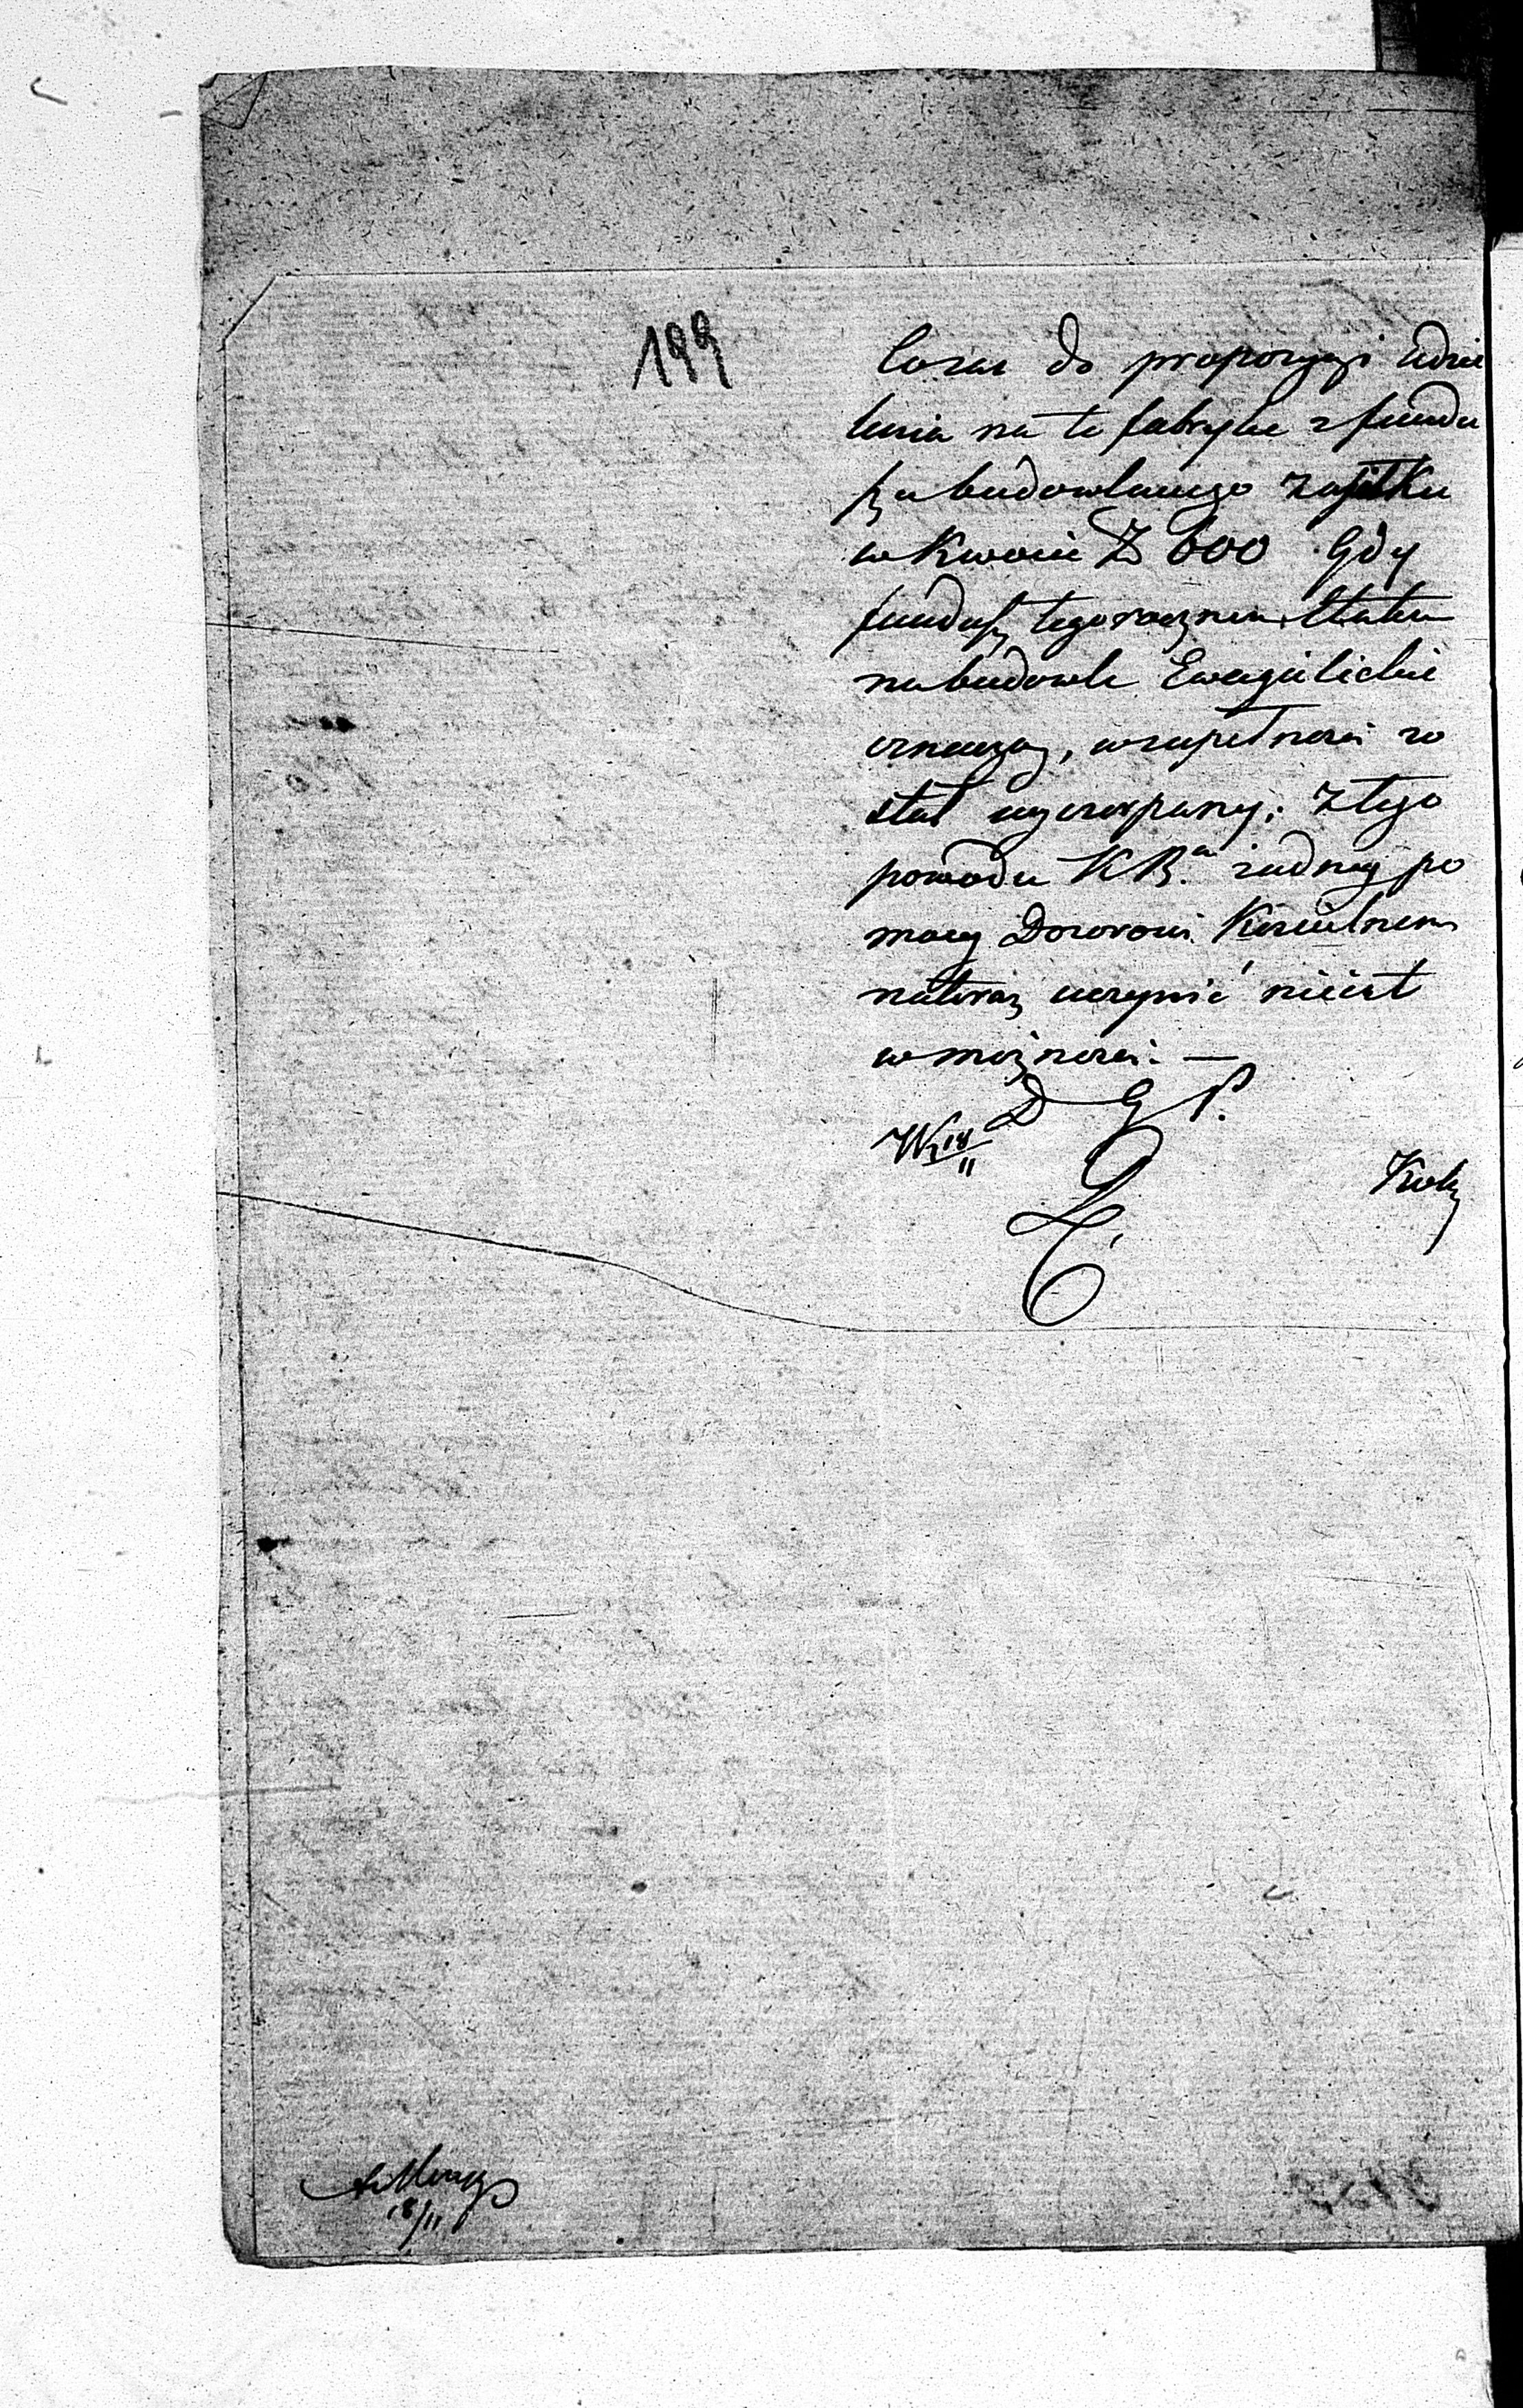 199
Coraz do propozycyi udzie
lenia na te fabrykę z fundu
szu budowlanego zasiłku
w kwocie Z 600 Gdy
fundusz tegorocznem Etatem
na budowle Ewagielickie
oznaczony, w zupełności zo
stał wyczerpany; z tego
powodu KR.a żadney po
mocy Dozorowi Kościelnemu
nateraz uczynić nieiest
w możności. —
D G P.
18/11
18/11